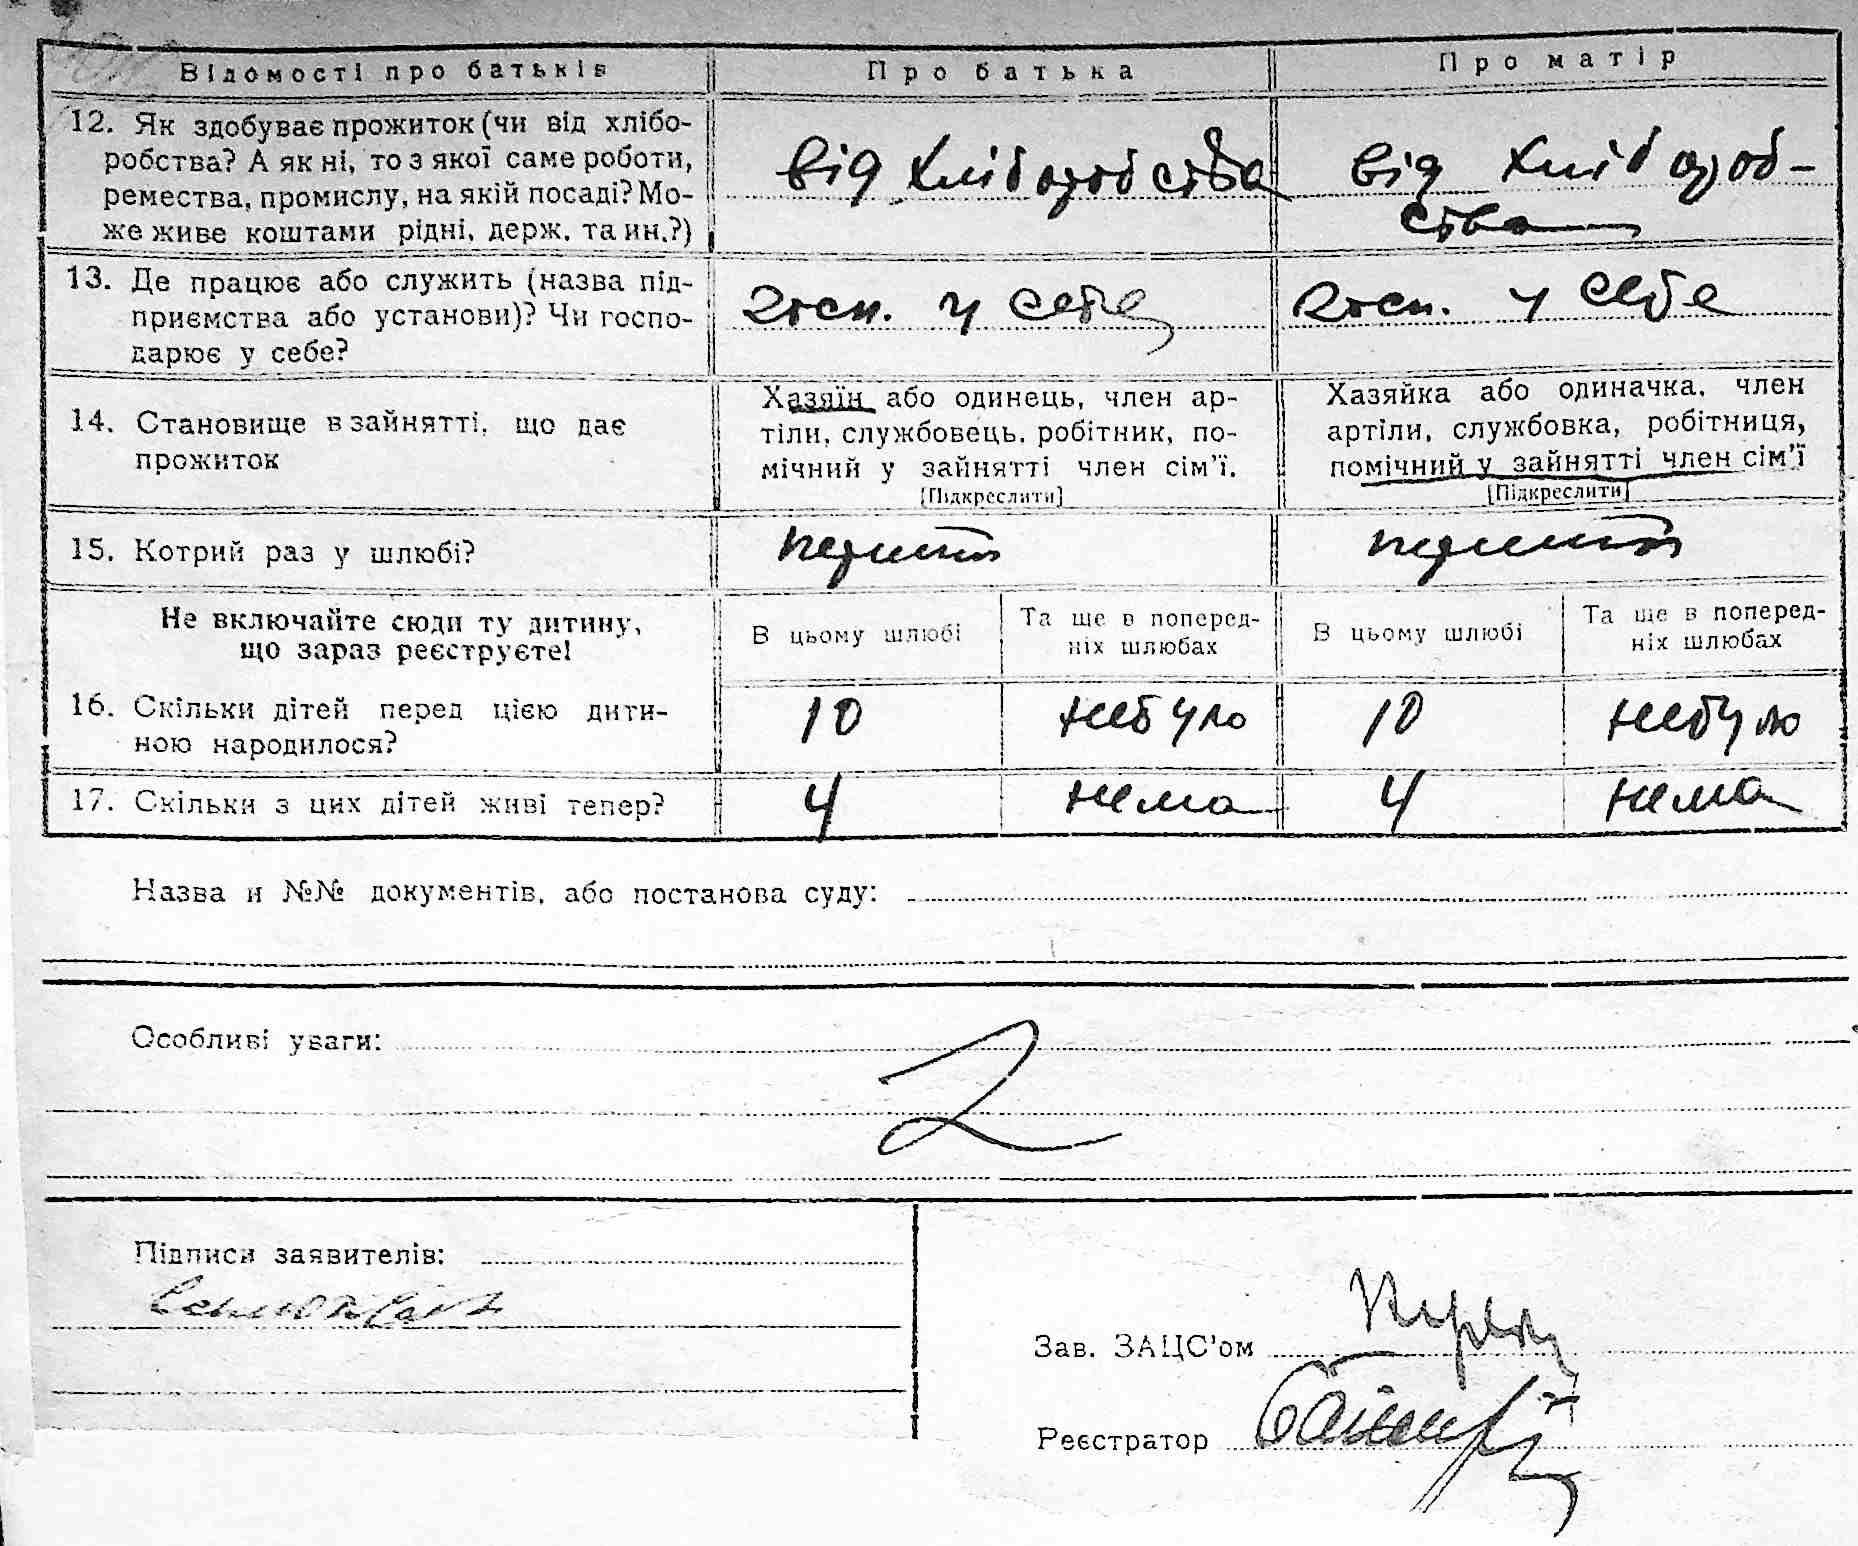 Відомості про батьків Про батька Про матір
12. Як здобуває прожиток (чи від хлібо-
робства? А як ні, то з якої саме роботи,
ремества, промислу, на якій посаді? Мо-
же живе коштами рідні, держ. та ин.?)
від хліборобства
від хлібороб-
ства
13. Де працює або служить (назва під-
приємства або установи)? Чи госпо-
дарює у себе?
госп. у себе
госп. у себе
14. Становище в зайнятті, що дає
прожиток
Хазяїн або одинець, член ар-
тіли, службовець, робітник, по-
мічний у зайнятті член сім'ї.
[Підкреслити]
Хазяйка або одиначка, член
артіли, службовка, робітниця,
помічний у зайнятті член сім'ї
[Підкреслити]
15. Котрий раз у шлюбі?
Не включайте сюди ту дитину,
що зараз реєструєте!
В цьому шлюбі
Та ще в поперед-
ніх шлюбах
В цьому шлюбі
Та ще в поперед-
ніх шлюбах
16. Скільки дітей перед цією дити-
ною народилося?
10 небуло 10 небуло
17. Скільки з цих дітей живі тепер? 4 нема 4 нема
Назва и №№ документів, або постанова суду:
Особливі уваги:
2
Підписи заявителів:
Зав. ЗАЦС'ом
Реєстратор